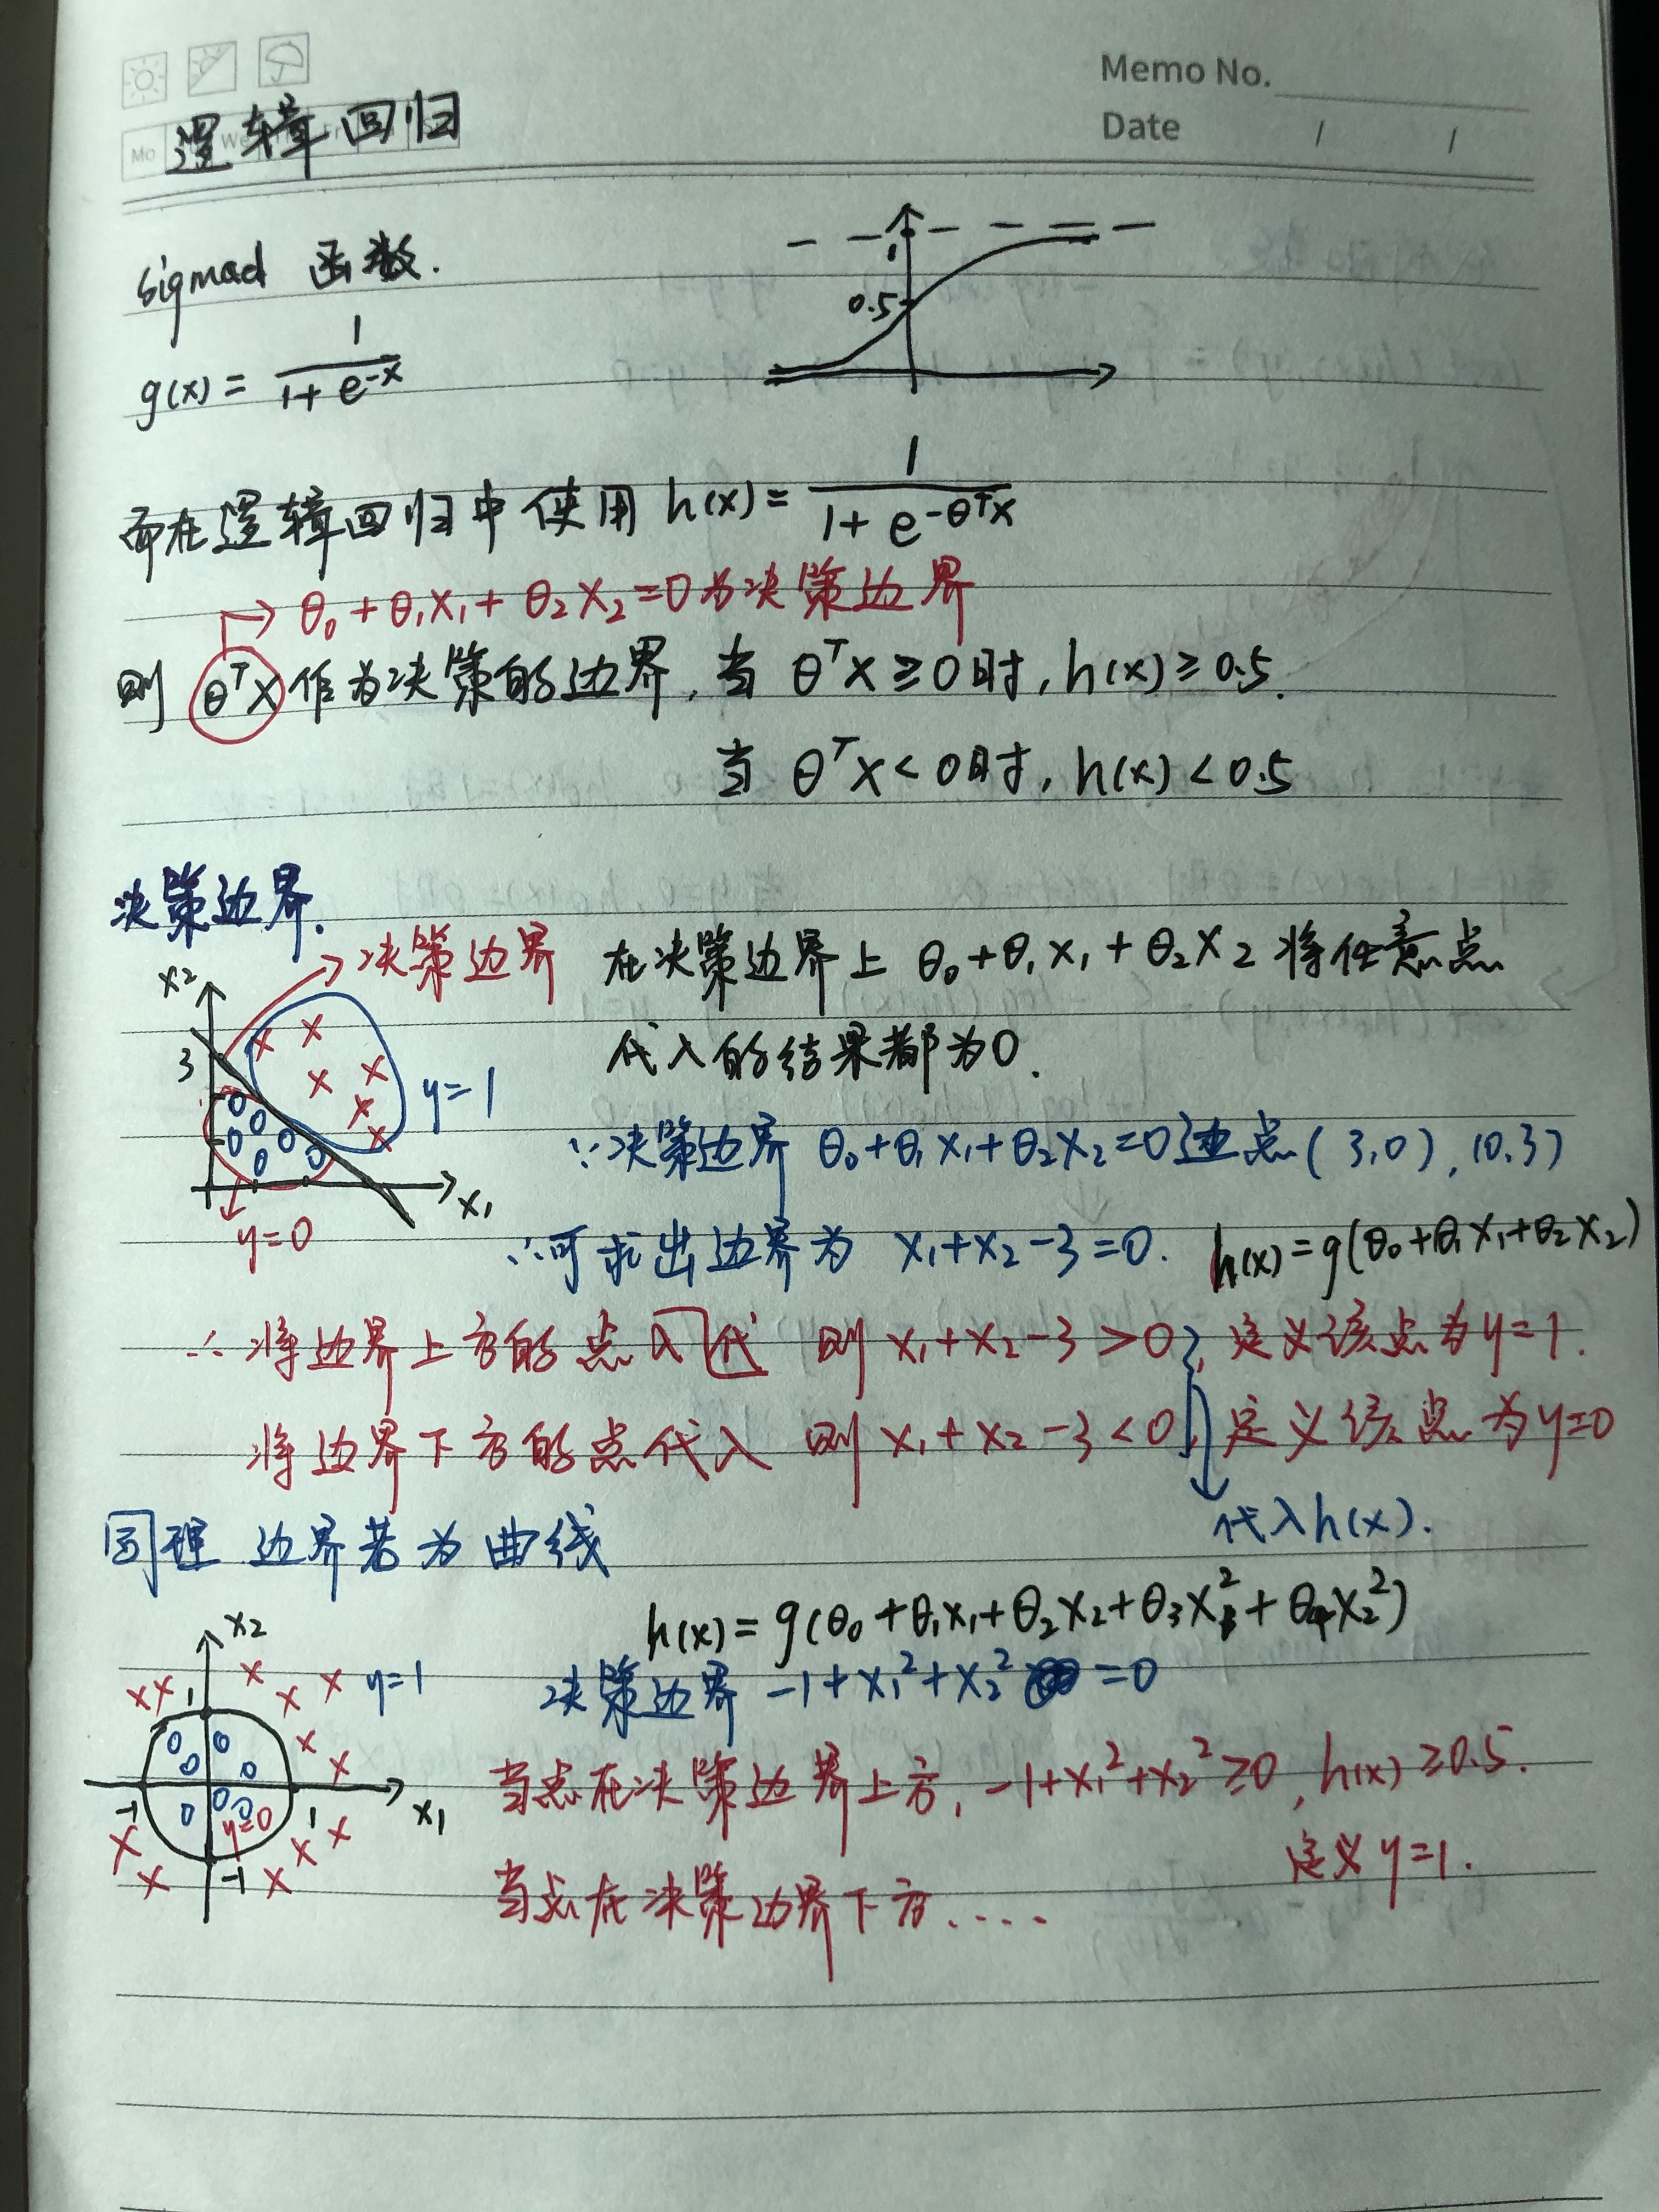 Memo No.
Date / /
Mo We Fr
逻辑回归
sigmad 函数.
1
0.5
g(x) = 1/(1+e^-x)
而在逻辑回归中使用 h(x) = 1/(1+e^-θᵀx)
→ θ₀ + θ₁x₁ + θ₂x₂ = 0 为决策边界
则 θᵀx 作为决策的边界, 当 θᵀx ≥ 0 时, h(x) ≥ 0.5.
当 θᵀx < 0 时, h(x) < 0.5
决策边界.
x₂
→ 决策边界
3
y=1
x₁
y=0
在决策边界上 θ₀ + θ₁x₁ + θ₂x₂ 将任意点
代入的结果都为0.
∵决策边界 θ₀+θ₁x₁+θ₂x₂=0 过点(3,0), (0,3)
∴可求出边界为 x₁+x₂-3=0. h(x)=g(θ₀+θ₁x₁+θ₂x₂)
∴ 将边界上方的点入代 则 x₁+x₂-3>0, 定义该点为y=1.
将边界下方的点代入 则 x₁+x₂-3<0, 定义该点为y=0
代入h(x).
同理 边界若为曲线
h(x) = g(θ₀+θ₁x₁+θ₂x₂+θ₃x₁²+θ₄x₂²)
x₂
y=1
1
-1
1
x₁
y=0
-1
决策边界 -1+x₁²+x₂² =0
当点在决策边界上方, -1+x₁²+x₂²≥0, h(x)≥0.5.
定义 y=1.
当点在决策边界下方.....